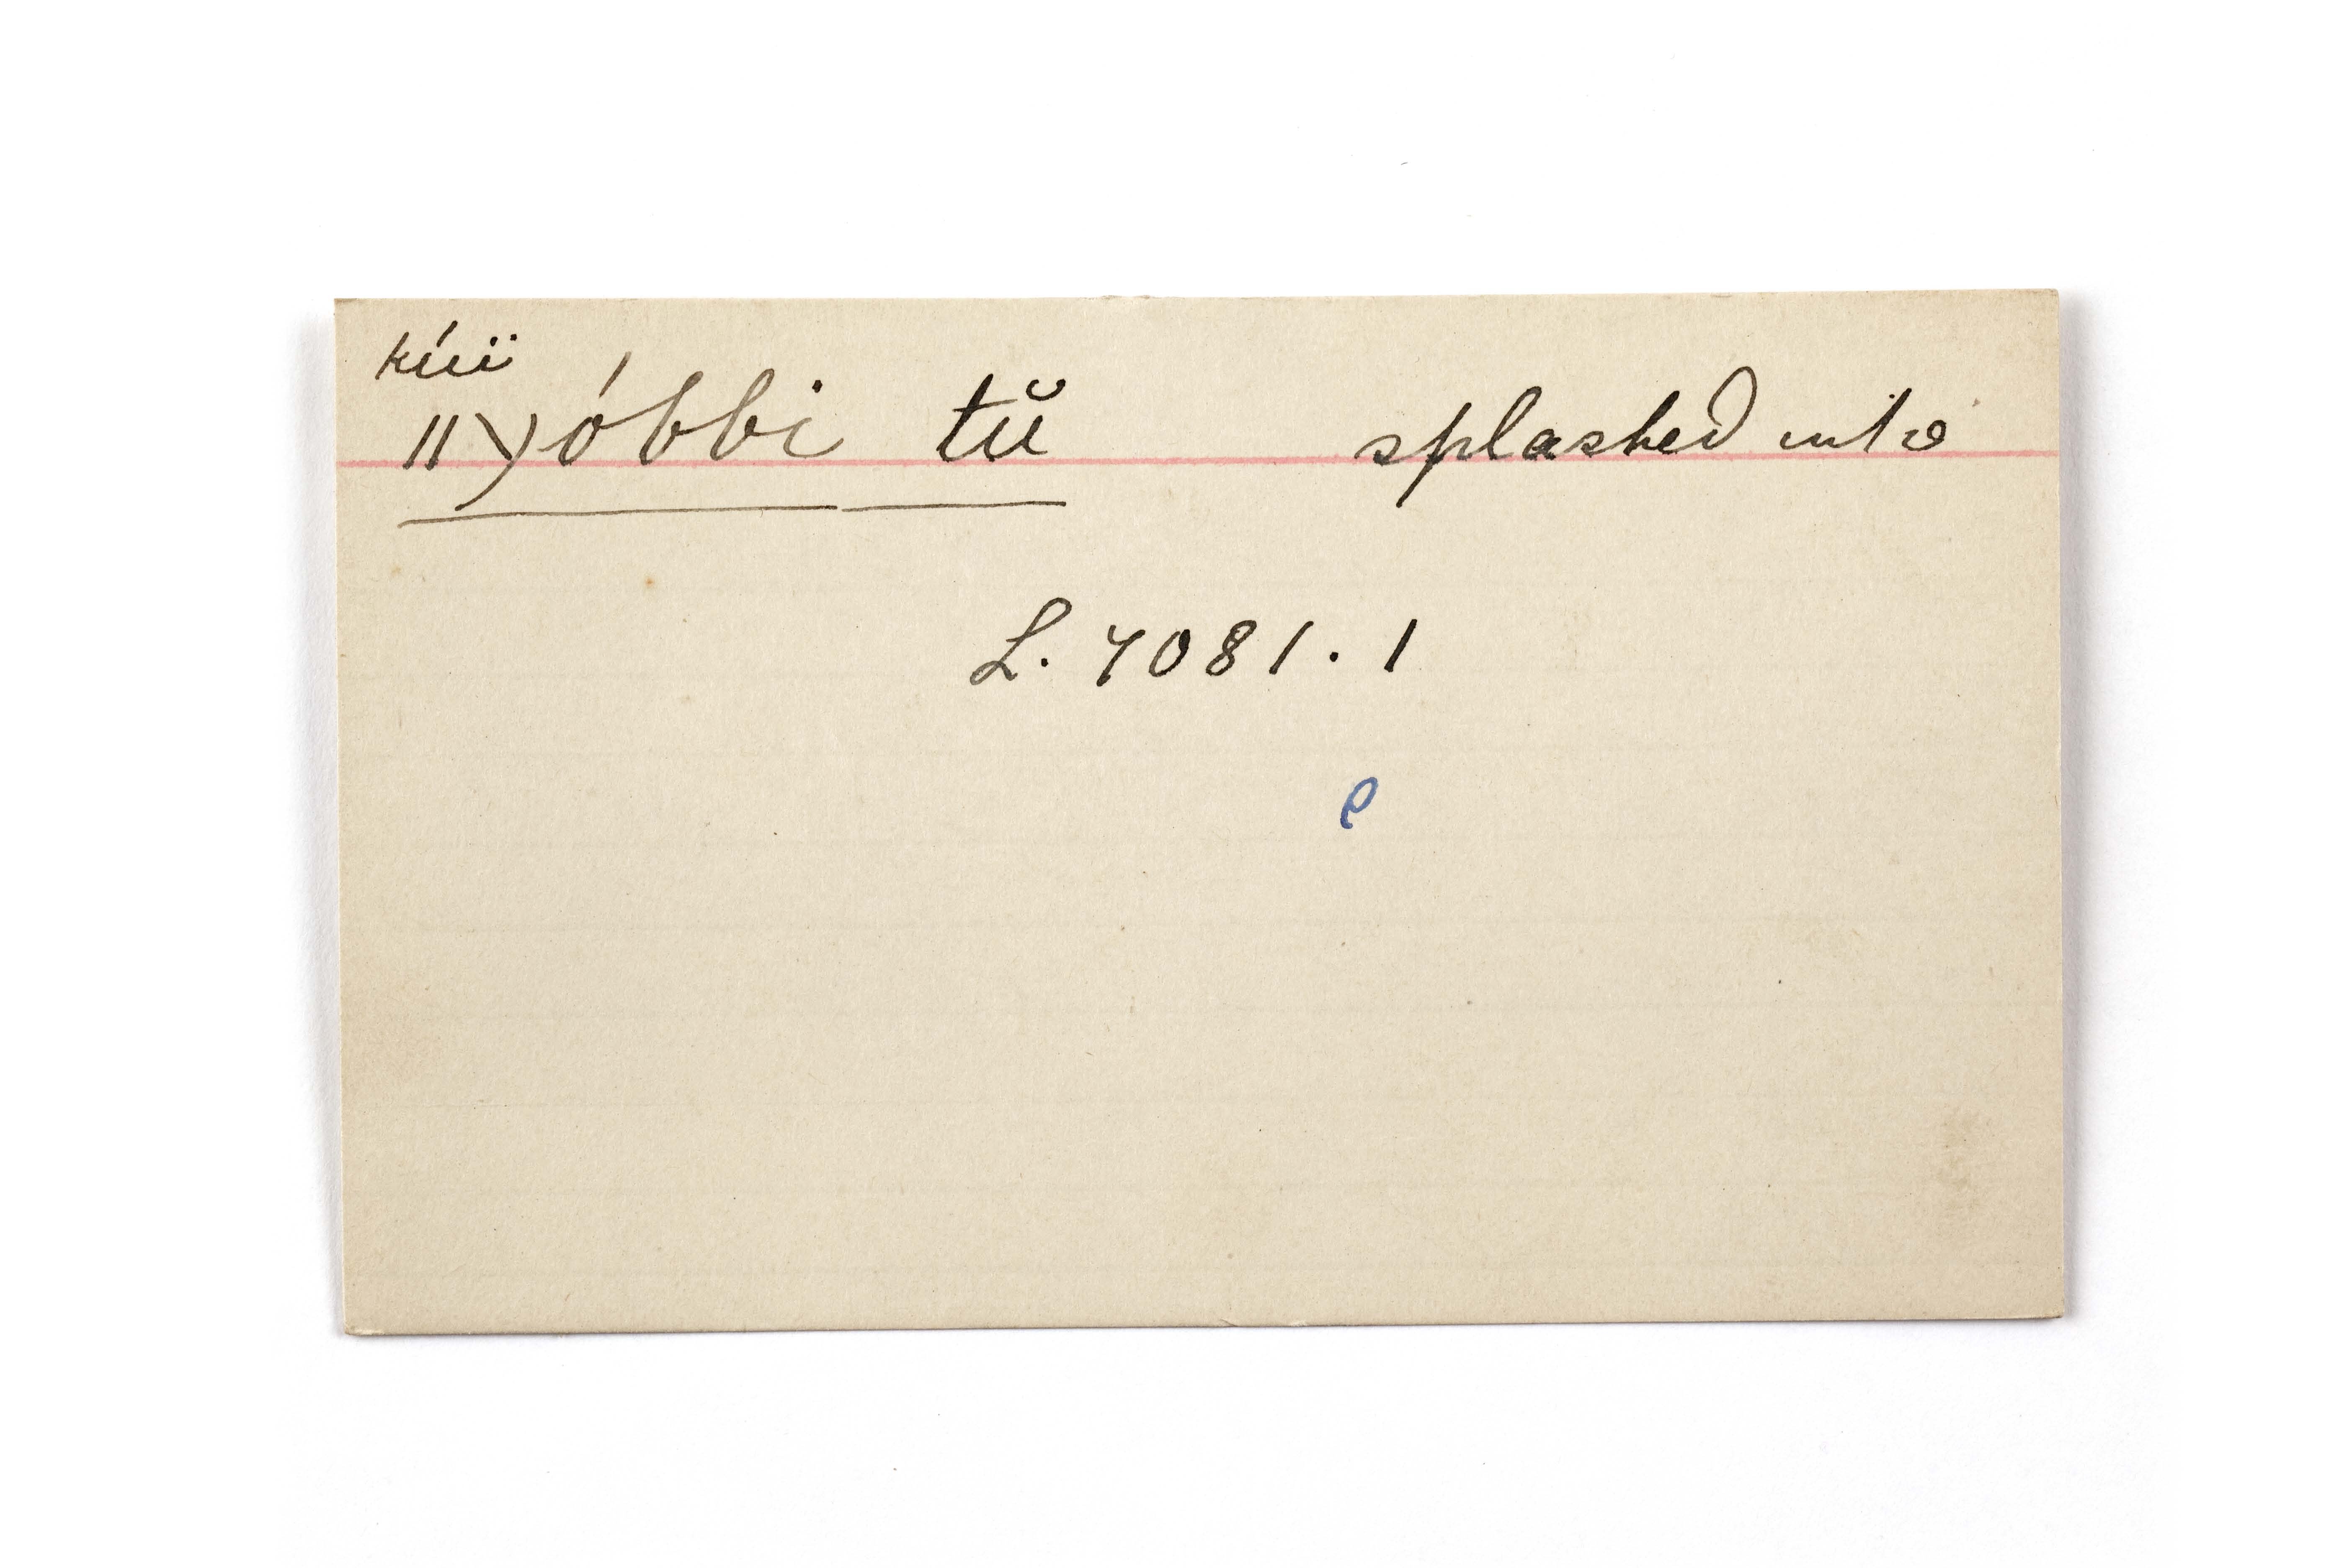 kúï
ǁχóbbi tŭ splashed into
L. 7081. 1
e